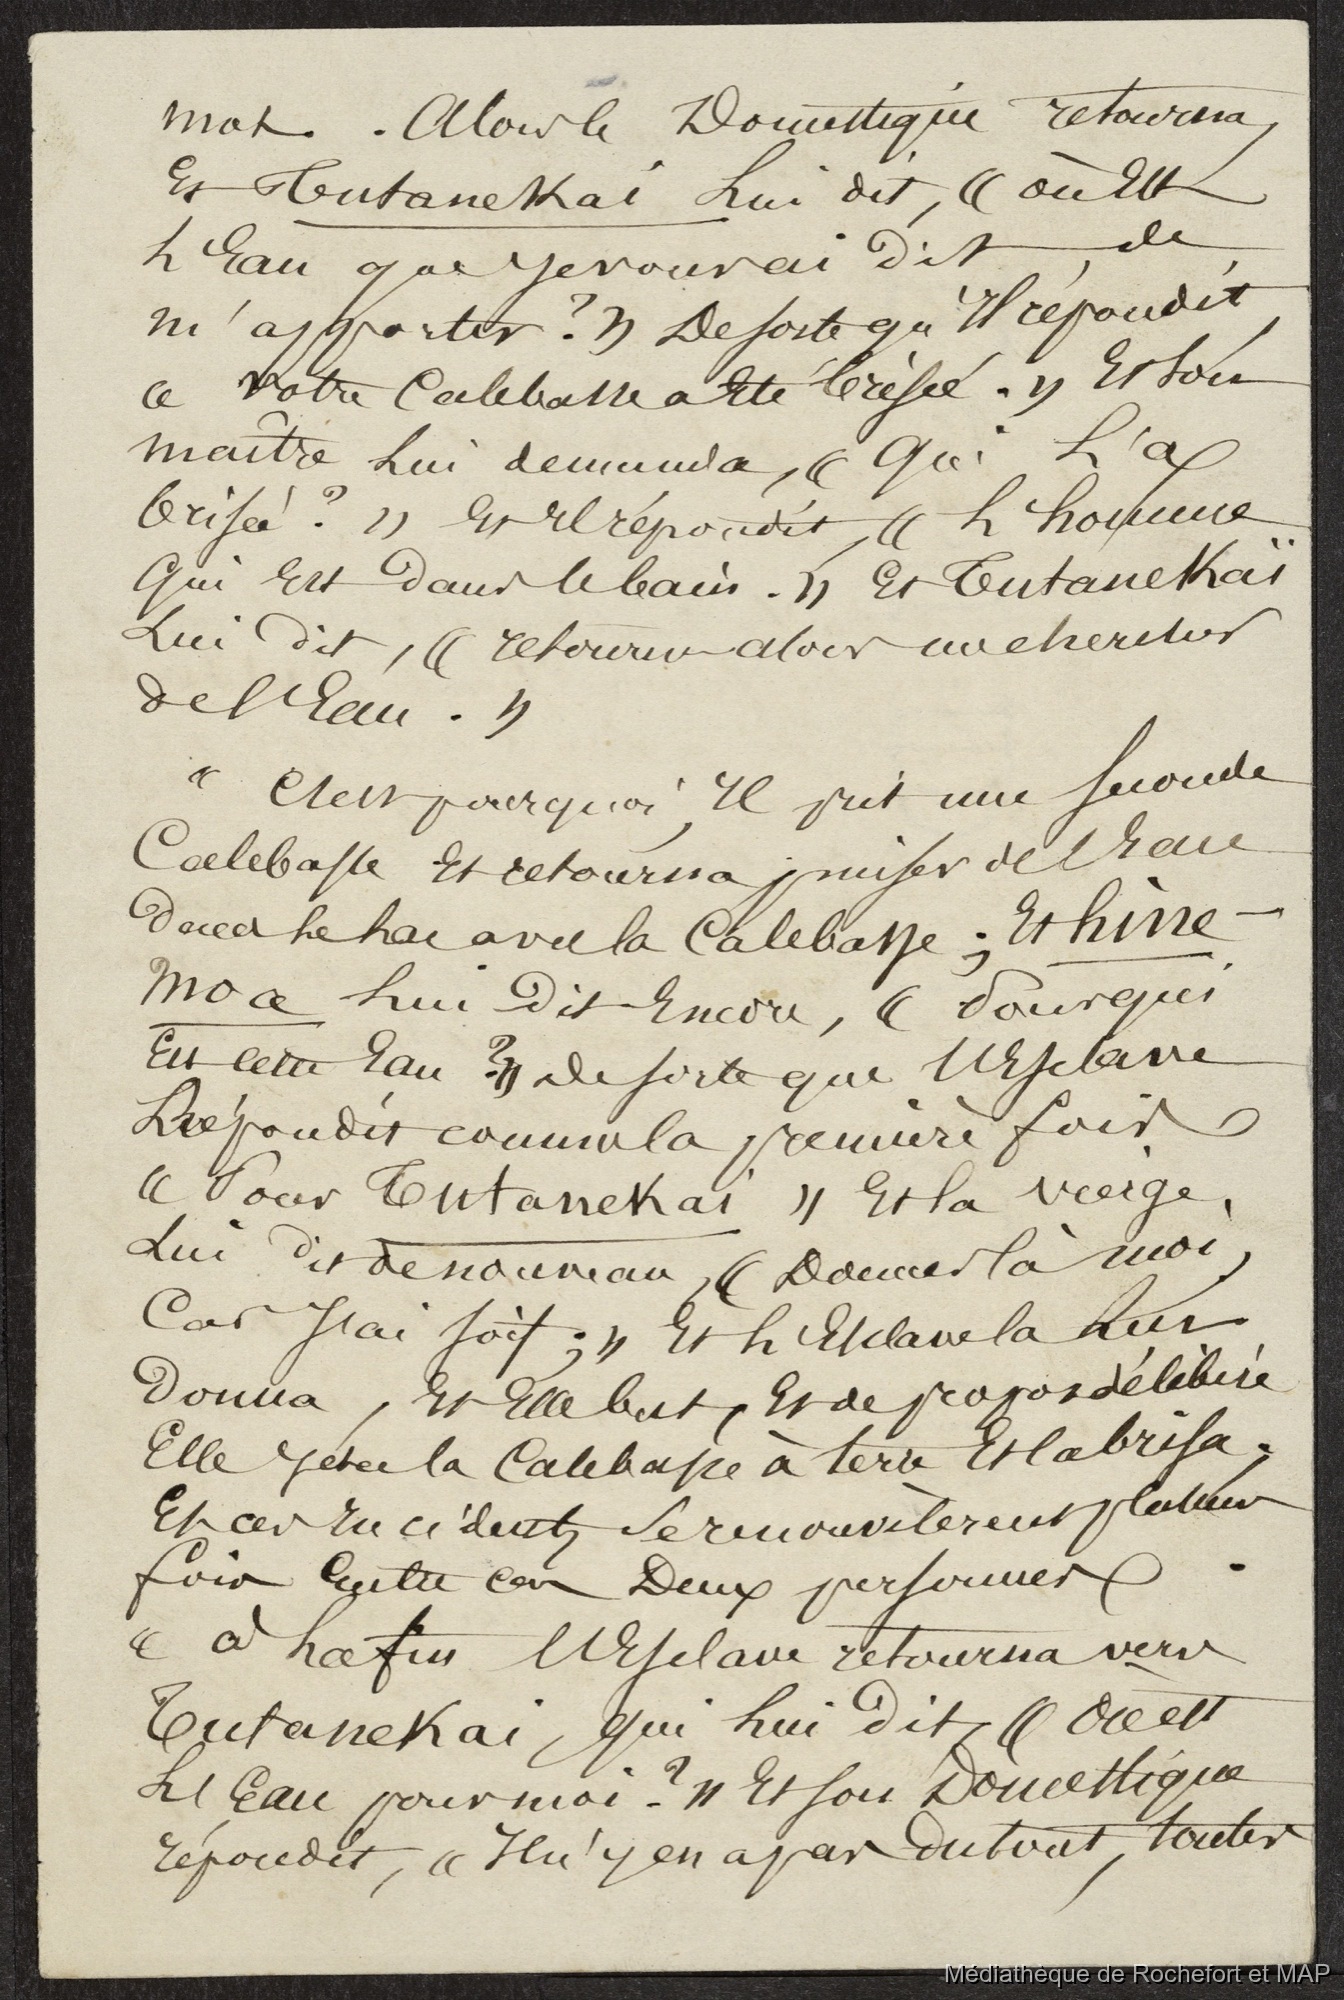 mot. . Alors le Domestique retourna,
Et Tutanekai lui dit, « où Est
l'Eau que je vous ai Dit de
m'apporter ? » De sorte qu'Il répondit,
« votre Calebasse a Eté brisée . » Et son
maître lui demanda, « Qui l'a
brisée ? » Et Il répondit, « l'homme
Qui Est Dans le bain . » Et Tutanekaï
Lui dit, « retourne alors me chercher
de l'Eau . »
« C'est pourquoi, Il prit une Seconde
Calebasse Et retourna puiser de l'Eau
Dans le lac avec la Calebasse ; Et hine-
moa lui Dit Encore, « Pour qui
Est cette Eau ? » de sorte que l'Esclave
Répondit comme la première fois
« Pour Tutanekai » Et la vierge,
Lui Dit de nouveau, « Donnez la à moi,
Car J'ai soif ; » Et l'Esclave la lui
Donna, Et Elle but, Et de propos délibéré
Elle jeta la Calebasse à terre Et la brisa ;
Et ces Incidents se renouvelèrent plusieurs
fois Entre ces Deux personnes .
« à la fin l'Esclave retourna vers
Tutanekai, qui lui Dit, « Où est
l'Eau pour moi ? » Et son Domestique
répondit, « Il n'y en a pas du tout, toutes
Médiathèque de Rochefort et MAP